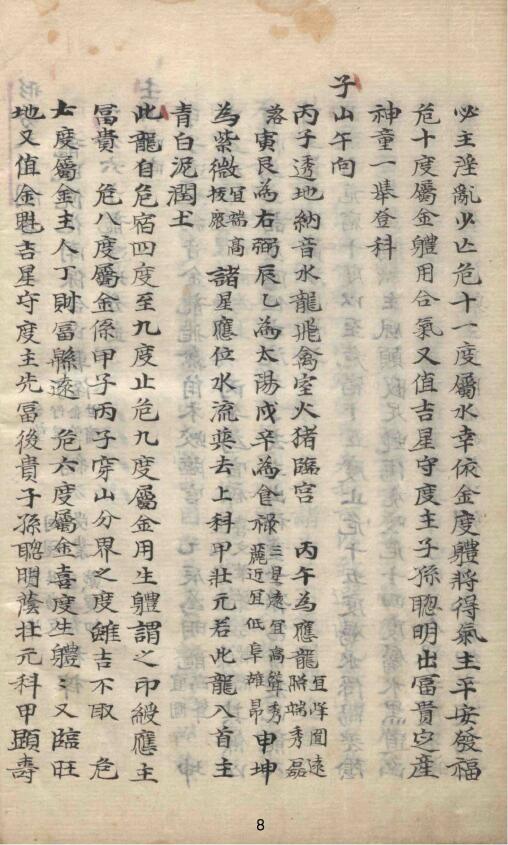 必主淫亂少亡危十一度屬水幸依金度軆將得氣主平安發福
危十度屬金軆用合氣又值吉星守度主子孫聰明出冨貴定產
神童一舉登科
子山午向
丙子透地納音水龍飛禽室火猪臨宮　丙午為應龍宜岸圓遠照端秀磊
落寅艮為右弼辰乙為太陽戌辛為食祿三星遠宜高聳秀麗近宜低阜雄昂申坤
為紫微宜端高拔衆諸星應位水流巽去上科甲壯元若此龍入首主
青白泥潤土
此龍自危宿四度至九度止危九度屬金用生軆謂之印綬應主
冨貴　危八度屬金係甲子丙子穿山分界之度雖吉不取　危
七度屬金主人丁財冨緜遠　危六度屬金喜度生軆〻又臨旺
地又值金魁吉星守度主先冨後貴子孫聰明蔭壯元科甲顯壽
8